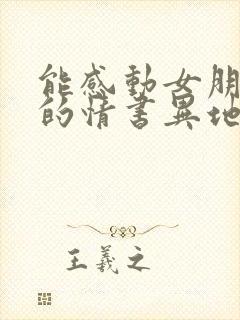 能感動女朋
的情書異地
王羲之